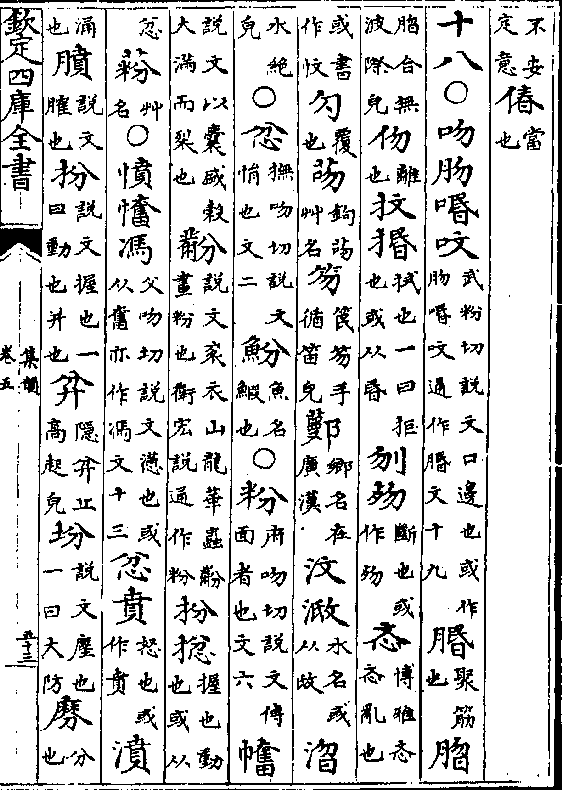 不安當
定意偆也
十八○吻肳㖧呅武粉切說文口邊也或作肳㖧呅通作脗文十九䐇聚筋也脗
脗合無波際皃伆離也抆捪拭也一曰拒也或从昏刎歾斷也或作歾忞博雅忞忞亂也
或書作忟匁覆也芴鉤芴艸名笏筤笏手循笛皃鄤鄉名在廣漢汶渂水名或从敃㳷
水絶皃○忿撫吻切說文悁也文二魵魚名鰕也○粉府吻切說文傅面者也文六幡
說文以囊盛穀大滿而裂也黺說文衮衣山龍華蟲黺畫粉也衛宏說通作粉扮㧾握也動也或从
忿䒶艸名○憤㥹馮父吻切說文懣也或从奮亦作馮文十三忿賁怒也或作賁濆
涌也膹說文臛也扮說文握也一曰動也幷也弅隱弅丘高起皃坋說文塵也一曰大防黂分也
欽定四庫全書
集韻
卷五
五十三